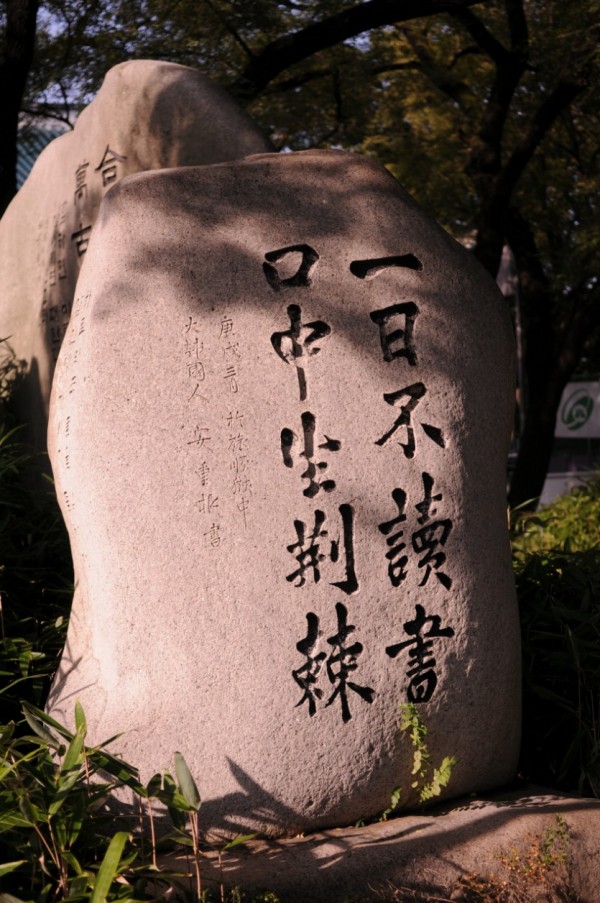 一日不讀書
口中生荊棘
庚戌三月 於旅順獄中
大韓國人 安重根 書
合
萬古